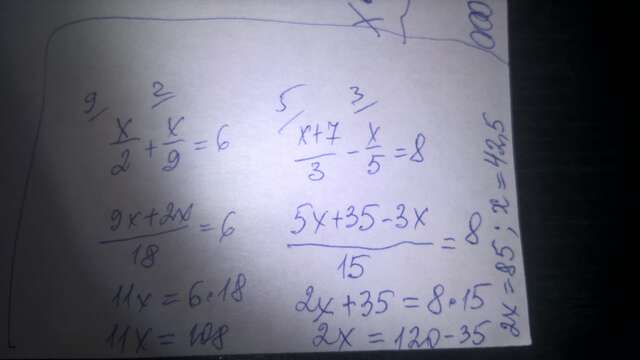 9/ 2/
x/2 + x/9 = 6
9x+2x/18 = 6
11x = 6·18
11x = 108
5/ 3/
x+7/3 - x/5 = 8
5x+35-3x/15 = 8
2x+35 = 8·15
2x = 120-35
2x = 85; x = 42,5